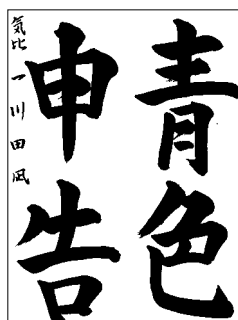 青色
申告
気比 一 川田凪